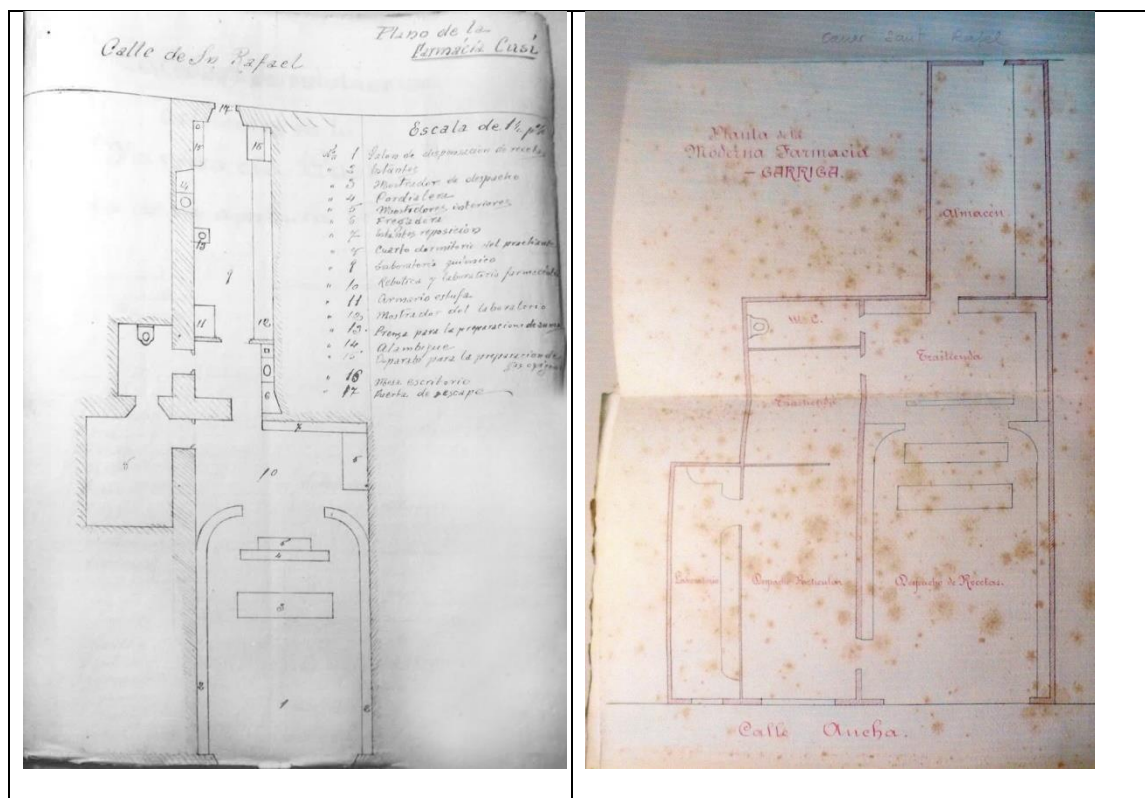 Calle de Sn Rafael
Plano de la
Farmacia Cusí
Escala de 1½ p%
Nº 1 Salon de disposicion de
" 2 Estantes
" 3 Mostrador de despacho
" 4 Cordialera
" 5 Mostradores interiores
" 6 Fregadera
" 7 Estantes reposicion
" 8 Cuarto dormitorio del practicante
" 9 Laboratorio químico
" 10 Rebotica y laboratorio
" 11 Armario estufa
" 12 Mostrador del laboratorio
" 13 Prensa para la preparacion de
" 14 Alambique
" 15 Aparato para la preparacion de
" 16 Mesa escritorio
" 17 Puerta de escape
17
15
16
14
13
9
11
12
6
7
10
5
4
3
2
1
2
Carrer Sant Rafel
Planta de la
Moderna Farmacia
- GARRIGA.
Almacén
W.C.
Trastienda
Laboratorio
Despacho Particular
Despacho de Recetas.
Calle Ancha.